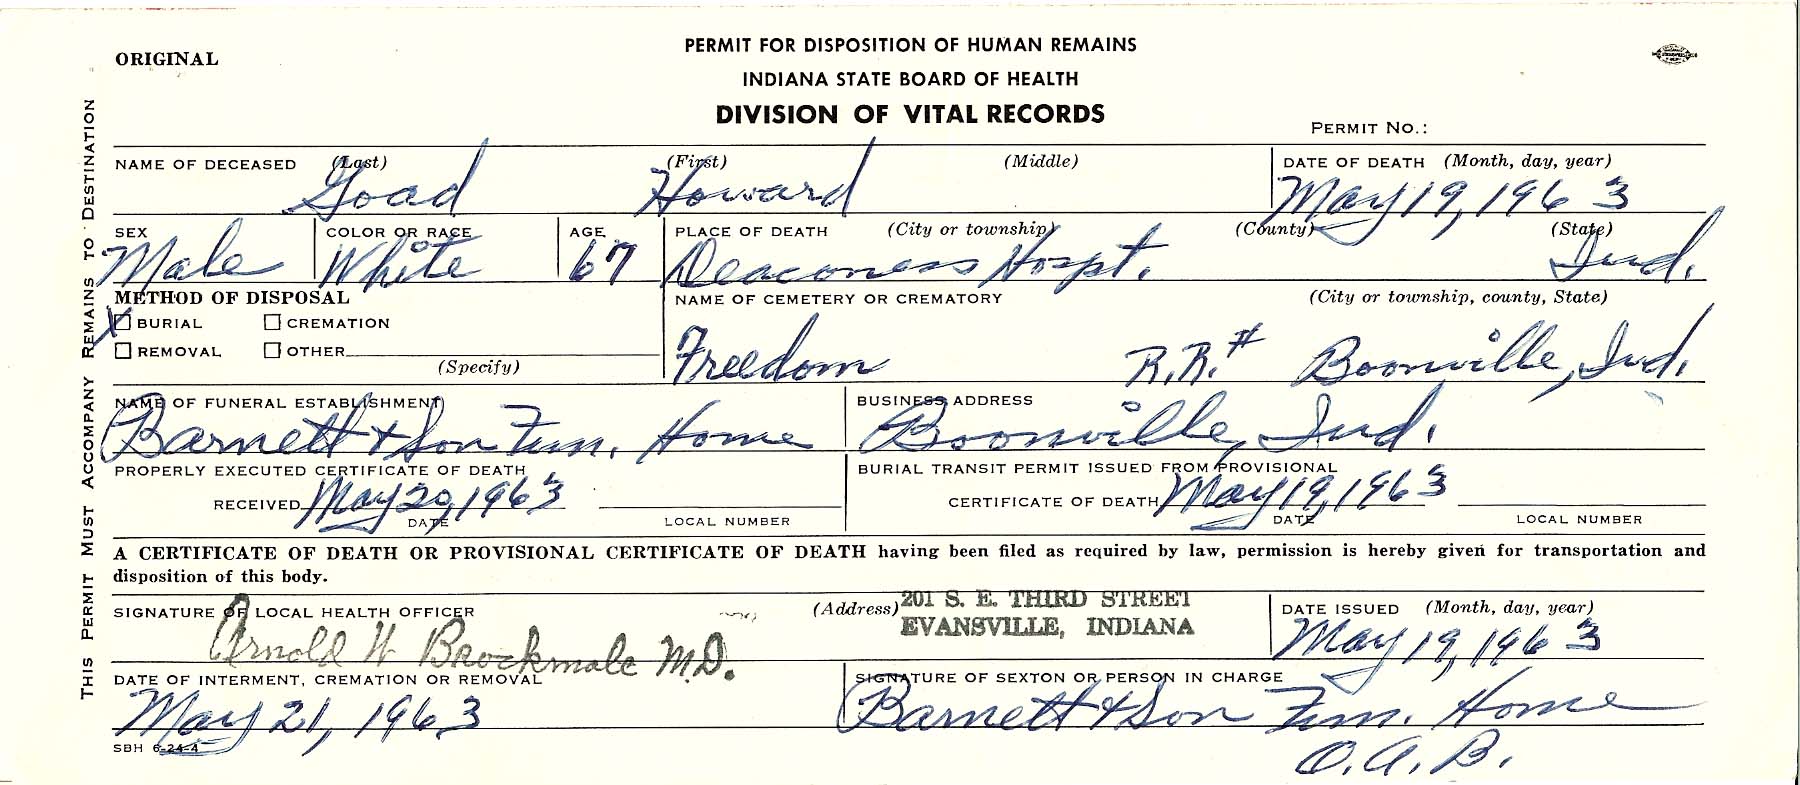 ORIGINAL
PERMIT FOR DISPOSITION OF HUMAN REMAINS
INDIANA STATE BOARD OF HEALTH
DIVISION OF VITAL RECORDS
PERMIT NO.:
THIS PERMIT MUST ACCOMPANY REMAINS TO DESTINATION
NAME OF DECEASED (Last) (First) (Middle) DATE OF DEATH (Month, day, year)
Goad Howard May 19, 1963
SEX COLOR OR RACE AGE PLACE OF DEATH (City or township) (County) (State)
Male White 67 Deaconess Hospt. Ind.
METHOD OF DISPOSAL NAME OF CEMETERY OR CREMATORY (City or township, county, State)
X BURIAL CREMATION
REMOVAL OTHER
(Specify)
Freedom R.R.# Boonville, Ind.
NAME OF FUNERAL ESTABLISHMENT BUSINESS ADDRESS
Barnett & Son Fun. Home Boonville, Ind.
PROPERLY EXECUTED CERTIFICATE OF DEATH BURIAL TRANSIT PERMIT ISSUED FROM PROVISIONAL
RECEIVED May 20, 1963 CERTIFICATE OF DEATH May 19, 1963
DATE LOCAL NUMBER DATE LOCAL NUMBER
A CERTIFICATE OF DEATH OR PROVISIONAL CERTIFICATE OF DEATH having been filed as required by law, permission is hereby given for transportation and
disposition of this body.
SIGNATURE OF LOCAL HEALTH OFFICER (Address) 201 S. E. THIRD STREET DATE ISSUED (Month, day, year)
EVANSVILLE, INDIANA
Arnold W Brockmole M.D. May 19, 1963
DATE OF INTERMENT, CREMATION OR REMOVAL SIGNATURE OF SEXTON OR PERSON IN CHARGE
May 21, 1963 Barnett & Son Fun. Home
SBH 6-24-4 O.A.B.